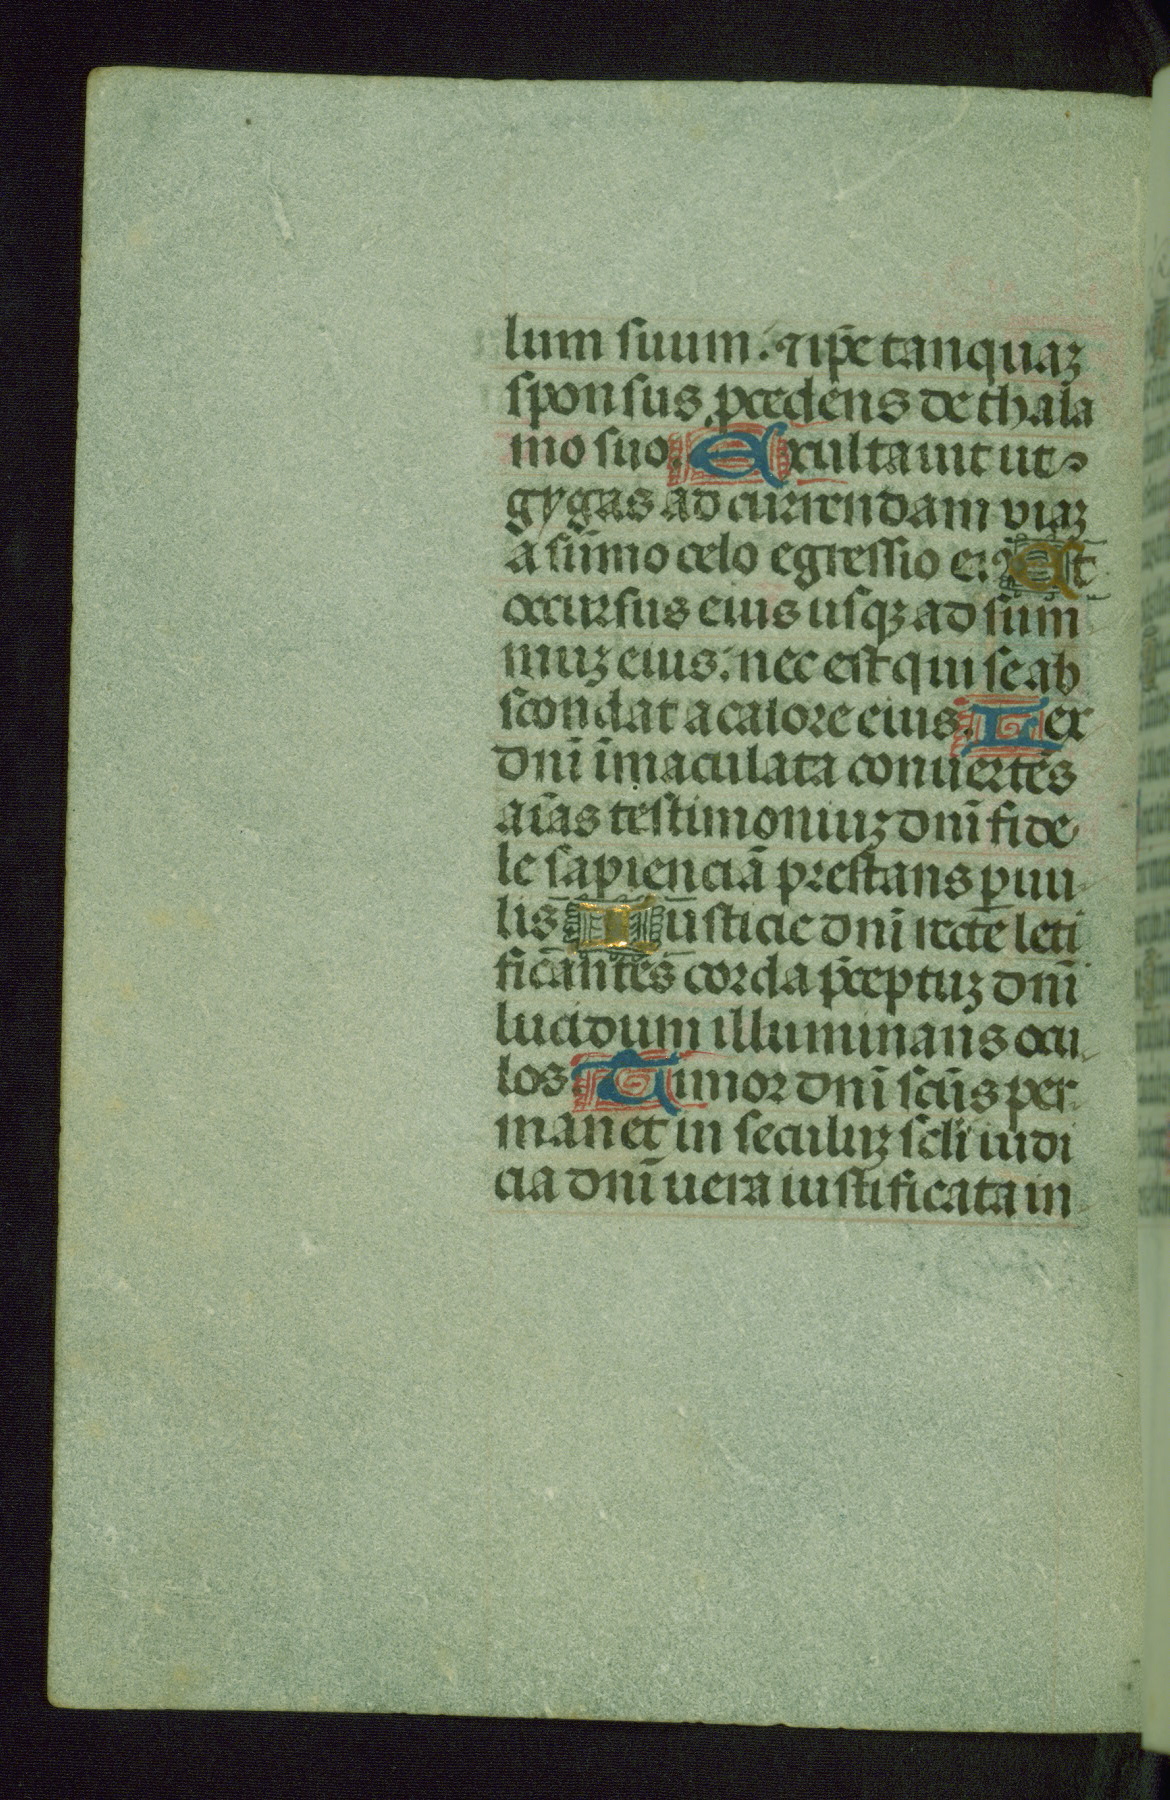 lum suum. ⁊ ip̃e tanquaꝫ
sponsus ꝓcedens de thala
mo suo. Exultauit ut
gygas ad currendam viaꝫ
a sũmo celo egressio eiꝰ Et
occursus eius usqꝫ ad sum
muꝫ eius: nec est qui se ab
scondat a calore eius. Lex
dñi ĩmaculata conuertẽs
aĩas testimoniuꝫ dñi fide
le sapienciã prestans ꝑuu
lis Iusticie dñi recte leti
ficantes corda p̃ceptuꝫ dñi
lucidum illuminans ocu
los Timor dñi scũs per
manet in seculuꝫ scłi iudi
cia dñi uera iustificata in